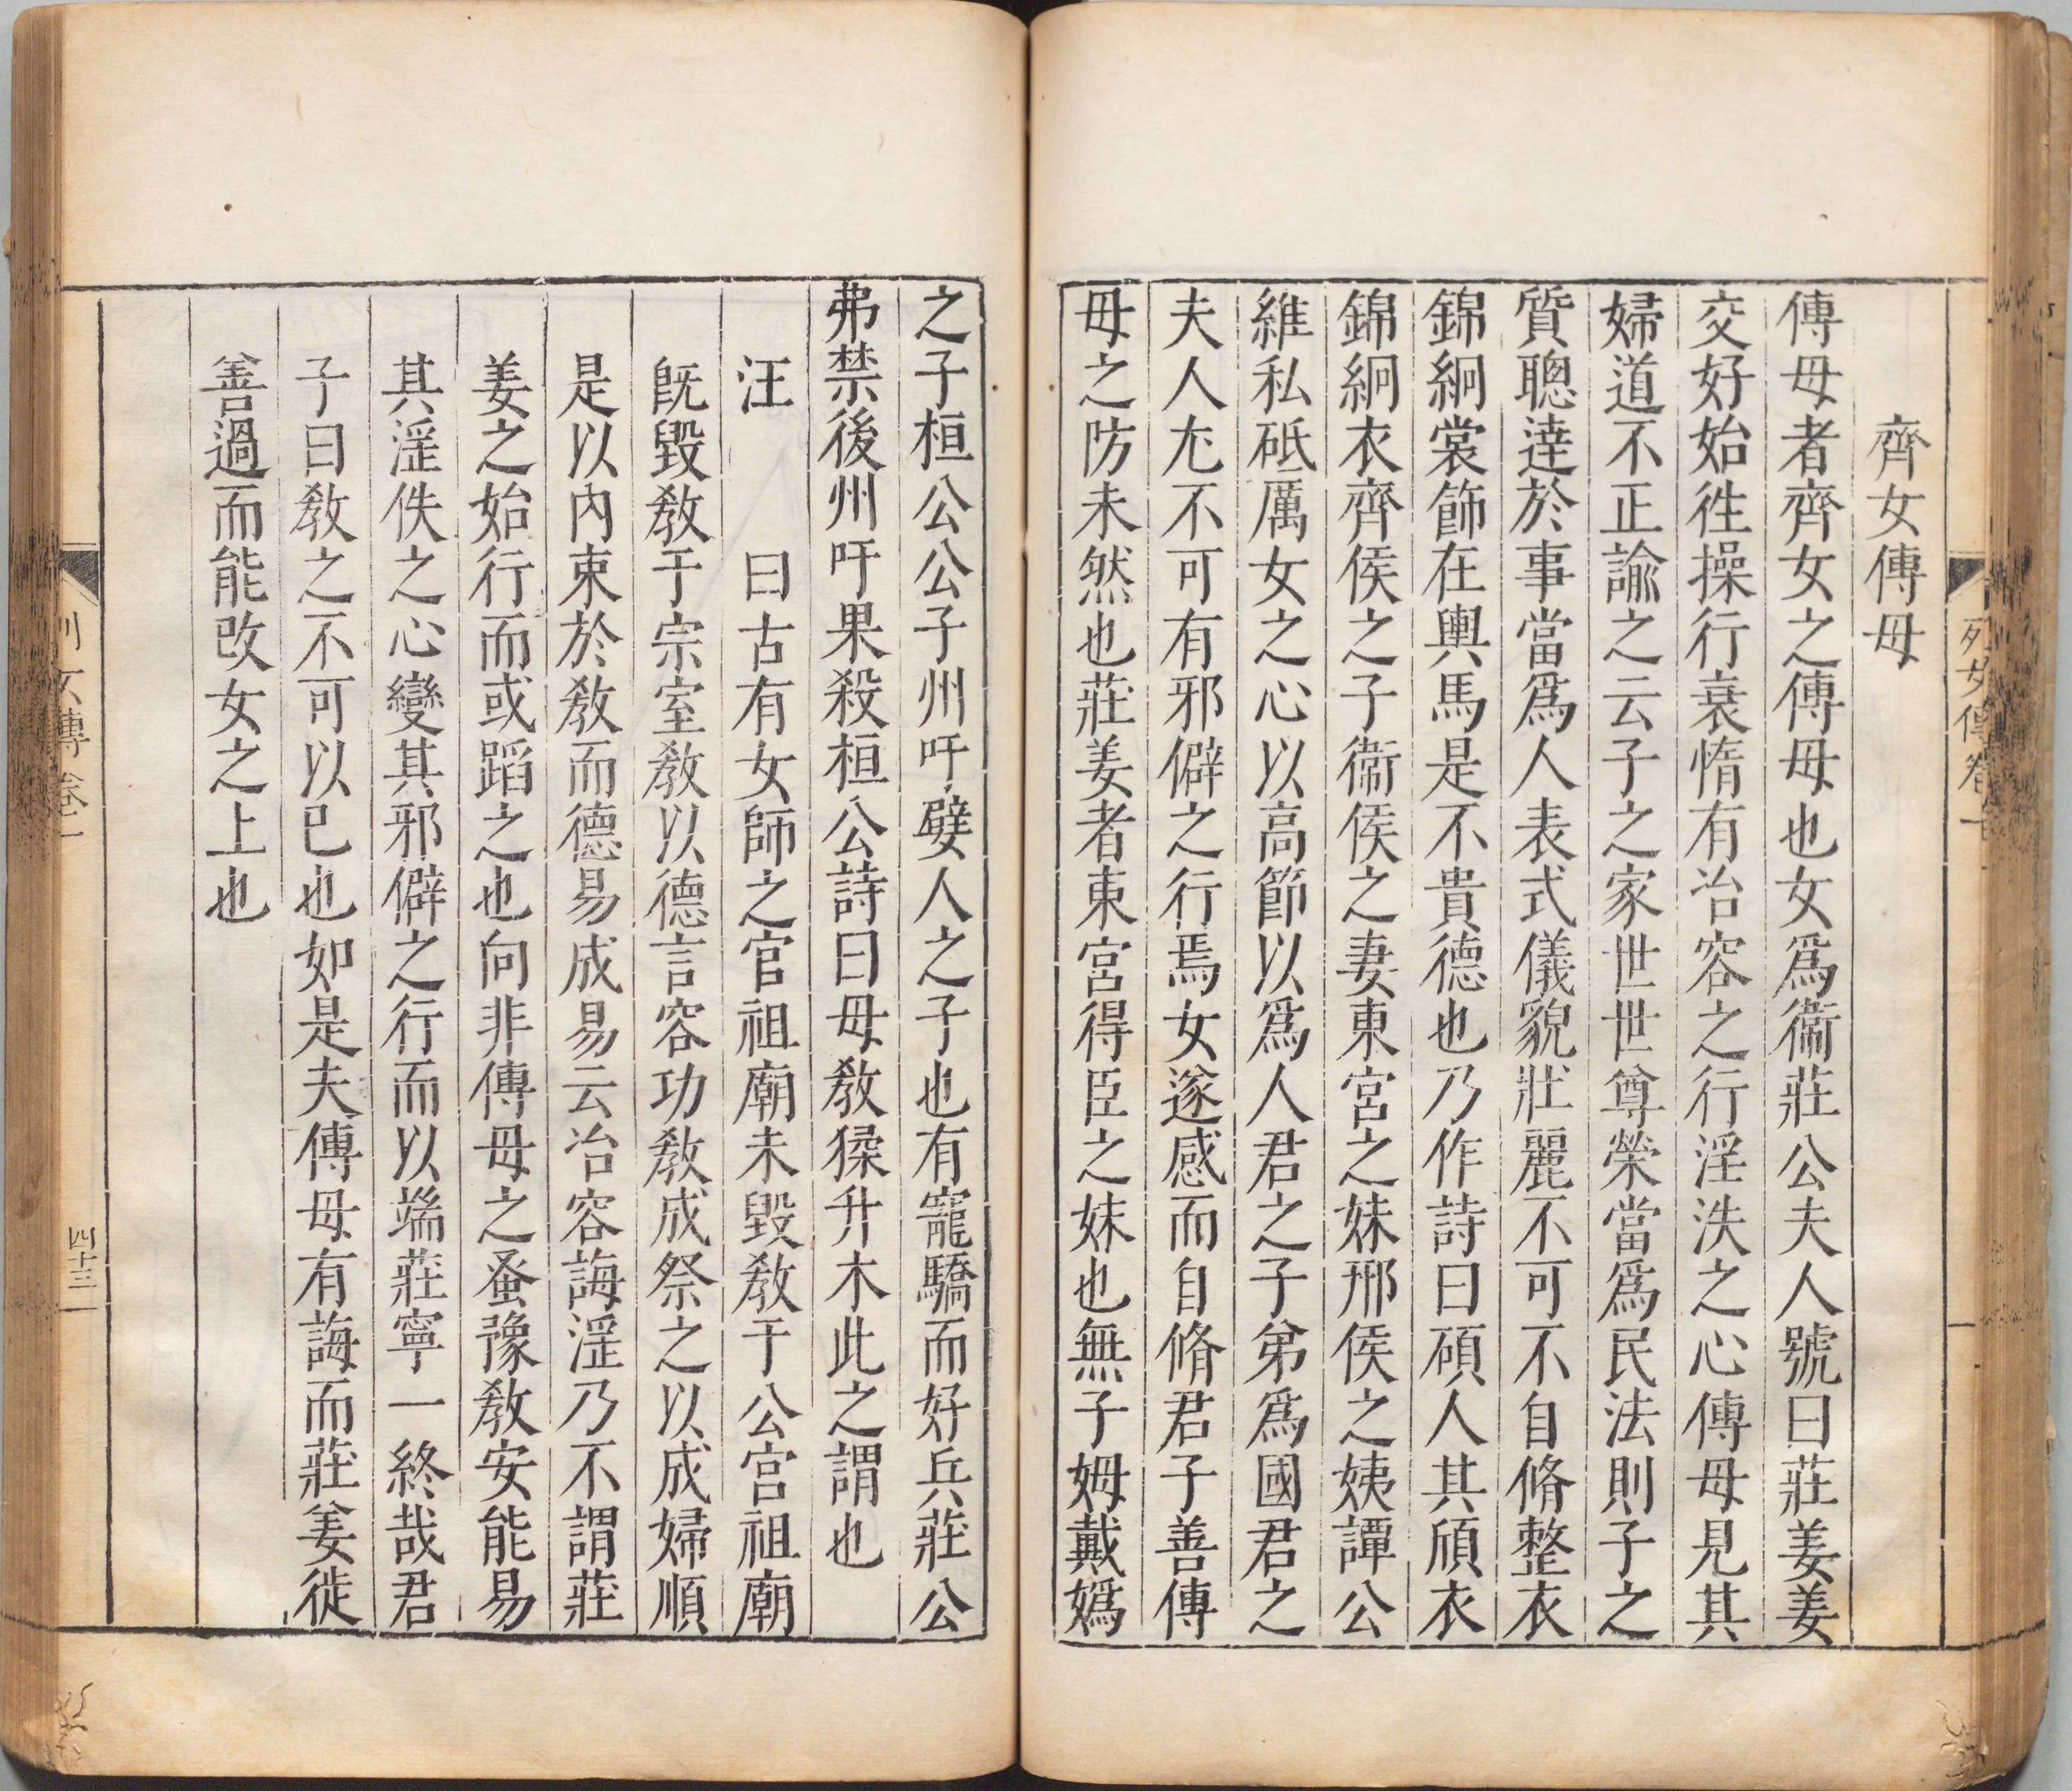 齊女傅母
傅母者齊女之傅母也女爲衞莊公夫人號曰莊姜姜
交好始徃操行衰惰有冶容之行淫泆之心傅母見其
婦道不正諭之云子之家世世尊榮當爲民法則子之
質聰逹於事當爲人表式儀貌壯麗不可不自脩整衣
錦絅裳飾在輿馬是不貴德也乃作詩曰碩人其頎衣
錦絅衣齊侯之子衞侯之妻東宮之妹邢侯之姨譚公
維私砥厲女之心以高節以爲人君之子弟爲國君之
夫人尤不可有邪僻之行焉女遂感而自脩君子善傅
母之防未然也莊姜者東宮得臣之妹也無子姆戴嬀
之子桓公公子州吁嬖人之子也有寵驕而好兵莊公
弗禁後州吁果殺桓公詩曰毋敎猱升木此之謂也
汪 曰古有女師之官祖廟未毀敎于公宮祖廟
旣毀敎于宗室敎以德言容功敎成祭之以成婦順
是以內束於敎而德易成易云冶容誨淫乃不謂莊
姜之始行而或蹈之也向非傅母之蚤豫敎安能易
其淫佚之心變其邪僻之行而以端莊寧一終哉君
子曰敎之不可以已也如是夫傅母有誨而莊姜徙
善過而能改女之上也
列女傳卷一
四十三